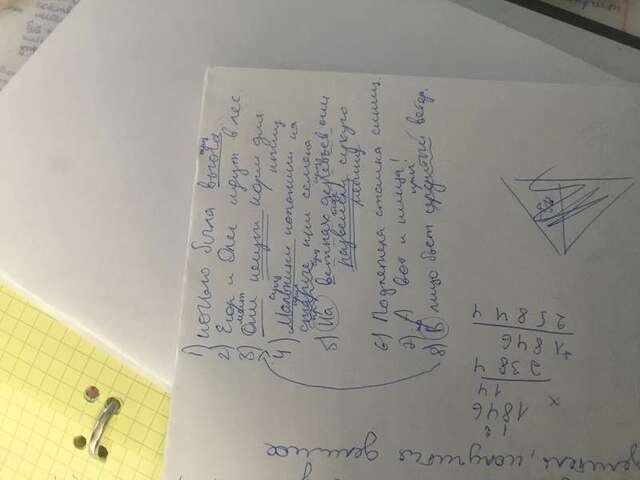 1) ночью была вьюга
сущ
2) Егор и Олег идут в лес
3) Они несут корм для
мест
птиц
4) Мальчики положили на
сущ
старые пни семена
прил
5) На ветках деревьев они
пр сущ сущ
развесили сухую
рябину
6) Подлетела стайка синиц.
7) А вот и птица!
8) В лицо бьет сердитый ветер.
пр прил
делителя, получится делимое
1 2
1846
× 14
7384
+1846
25844